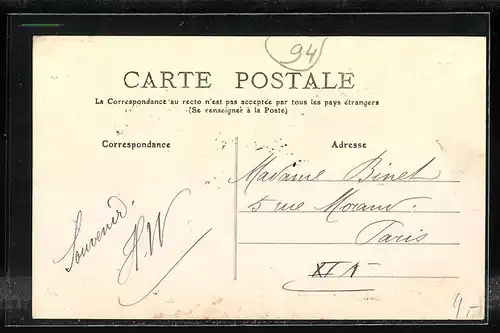 94
CARTE POSTALE
La Correspondance au recto n'est pas acceptée par tous les pays étrangers
(Se renseigner à la Poste)
Correspondance
Adresse
Souvenir.
HW
Madame Binet
5 rue Morand.
Paris
XI
9.-